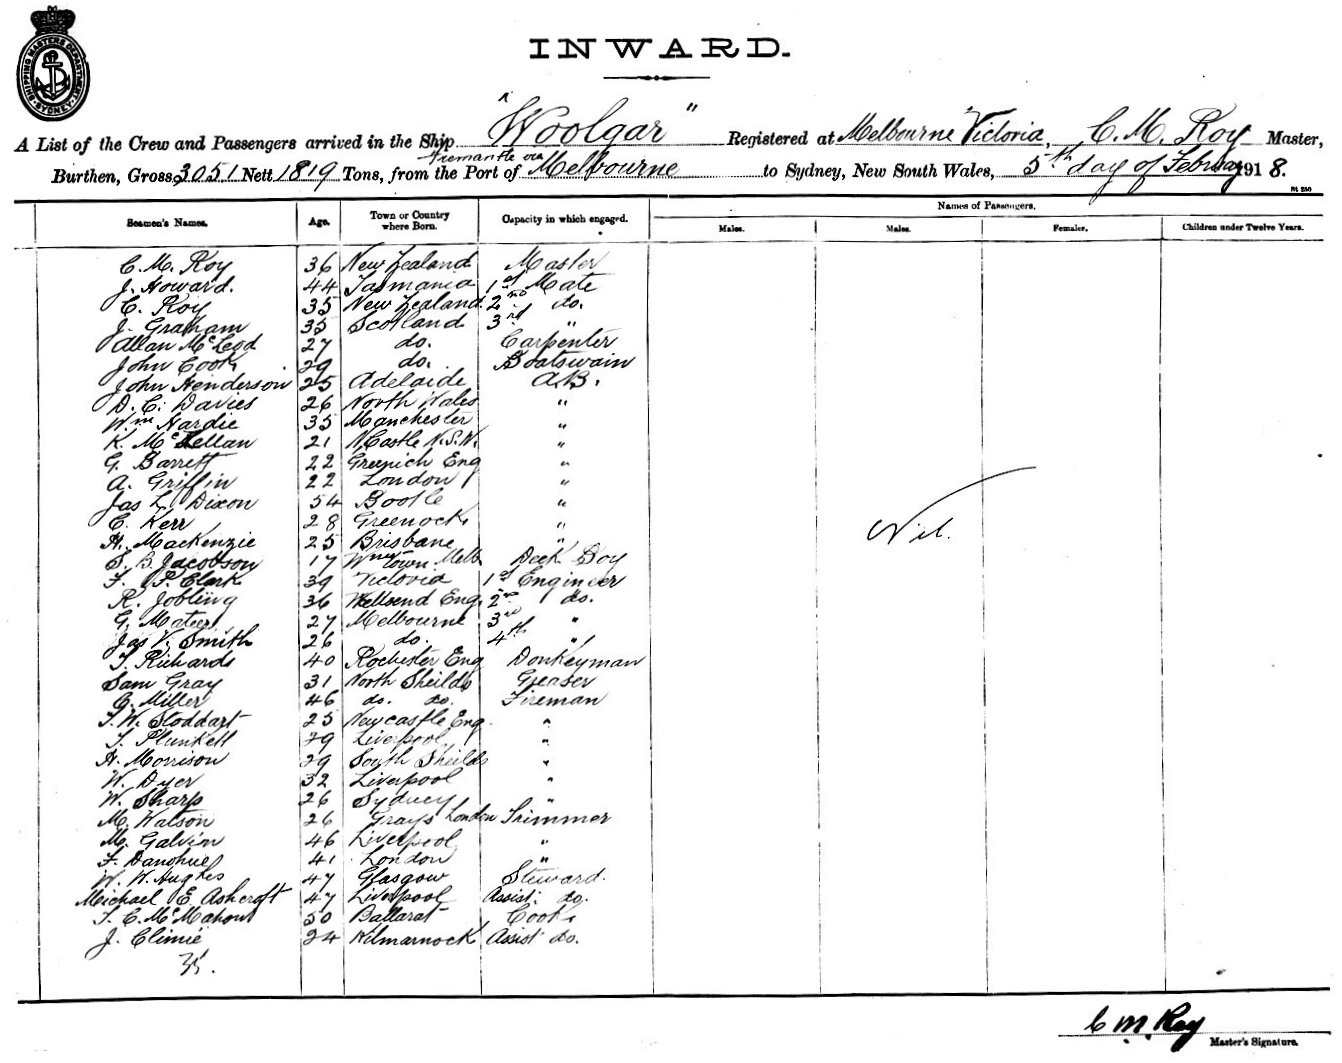 SHIPPING MASTERS DEPARTMENT SYDNEY
INWARD.
A List of the Crew and Passengers arrived in the Ship "Woolgar" Registered at Melbourne Victoria, C. M. Roy Master,
Fremantle via
Burthen, Gross, 3051 Nett 1819 Tons, from the Port of Melbourne to Sydney, New South Wales, 5th day of February 1918.
Seamen's Names. Age. Town or Country where Born. Capacity in which engaged. Names of Passengers.
Males. Males. Females. Children under Twelve Years.
C. M. Roy 36 New Zealand Master
J. Howard. 44 Tasmania 1st Mate
C. Roy 35 New Zealand 2nd do.
J. Graham 35 Scotland 3rd "
Allan McLeod 27 do. Carpenter
John Cook 29 do. Boatswain
John Henderson 25 Adelaide A.B.
D. C. Davies 26 North Wales "
Wm Hardie 35 Manchester "
K. McLellan 21 NCastle N.S.W. "
G. Barrett 22 Greenich Eng "
A. Griffin 22 London "
Jas L. Dixon 54 Bootle "
C. Kerr 28 Greenock "
H. Mackenzie 25 Brisbane "
S. B. Jacobson 17 Wmstown Melb Deck Boy
F. P. Clark 39 Victoria 1st Engineer
R. Jobling 36 Wellsend Eng. 2nd do.
G. Mateer 27 Melbourne 3rd "
Jas V. Smith 26 do. 4th "
T. Richards 40 Rochester Eng Donkeyman
Sam Gray 31 North Sheilds Greaser
C. Miller 46 do. do. Fireman
T. W. Stoddart 25 Newcastle Eng. "
T. Plunkett 29 Liverpool "
H. Morrison 29 South Sheilds "
W. Dyer 32 Liverpool "
W. Sharp 26 Sydney "
M. Watson 26 Grays London Trimmer
M. Galvin 46 Liverpool "
F. Danohue 41 London "
W. W. Hughes 47 Glasgow Steward.
Michael E. Ashcroft 47 Liverpool Assist. do.
T. C. McMahon 50 Ballarat Cook
J. Climie 24 Kilmarnock Assist do.
35.
Nil.
C M Roy
Master's Signature.